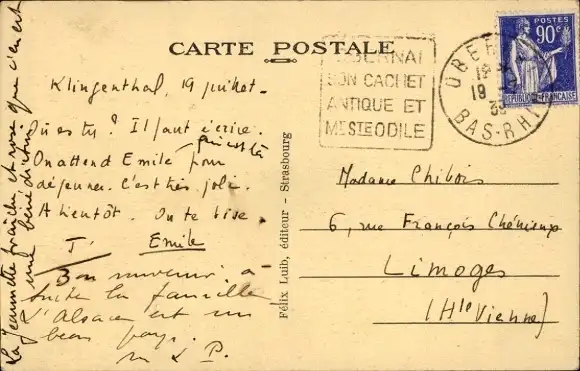 CARTE POSTALE
Klingenthal, 19 juillet.
Où es tu ? Il faut écrire.
On attend Emile qui est là pour
déjeuner. C'est très joli.
A bientôt. On te bise.
Emile
Bon souvenir à
toute la famille
L'Alsace est un
beau pays.
La Jeannette fraîche et rose que c'en est
une bénédiction
Félix Luib, éditeur - Strasbourg
OBERNAI
SON CACHET
ANTIQUE ET
MT STE ODILE
OBER
19
BAS-RHI
POSTES
90c
REPUBLIQUE FRANÇAISE
Madame Chibois
6, rue François Chénieux
Limoges
(Hte Vienne)